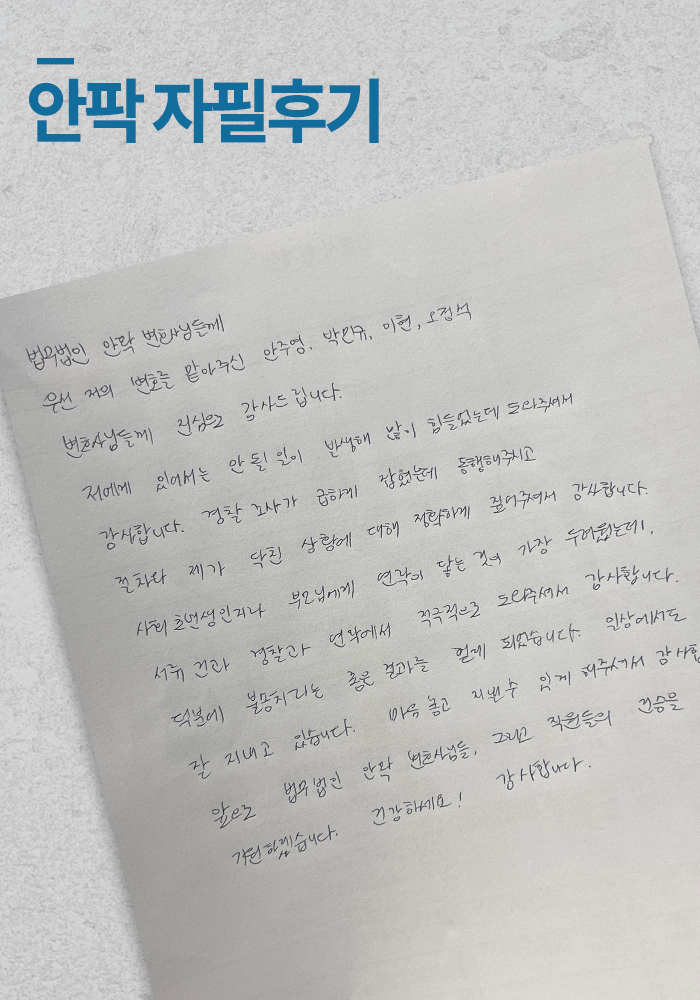 안팍 자필후기
법무법인 안팍 변호사님들께
우선 저의 변호를 맡아주신 안주영, 박민규, 이현, 오정석
변호사님들께 진심으로 감사드립니다.
저에게 있어서는 안 될 일이 발생해 많이 힘들었는데 도와주셔서
감사합니다. 경찰 조사가 급하게 잡혔는데 동행해주시고
절차와 제가 닥친 상황에 대해 정확하게 짚어주셔서 감사합니다.
사회초년생인지라 부모님에게 연락이 닿는 것이 가장 두려웠는데,
서류 건과 경찰과 연락에서 적극적으로 도와주셔서 감사합니다.
덕분에 불송치라는 좋은 결과를 얻게 되었습니다. 일상에서도
잘 지내고 있습니다. 마음 놓고 지낼 수 있게 해주셔서 감사합
앞으로 법무법인 안팍 변호사님들, 그리고 직원들의 건승을
기원하겠습니다. 건강하세요! 감사합니다.